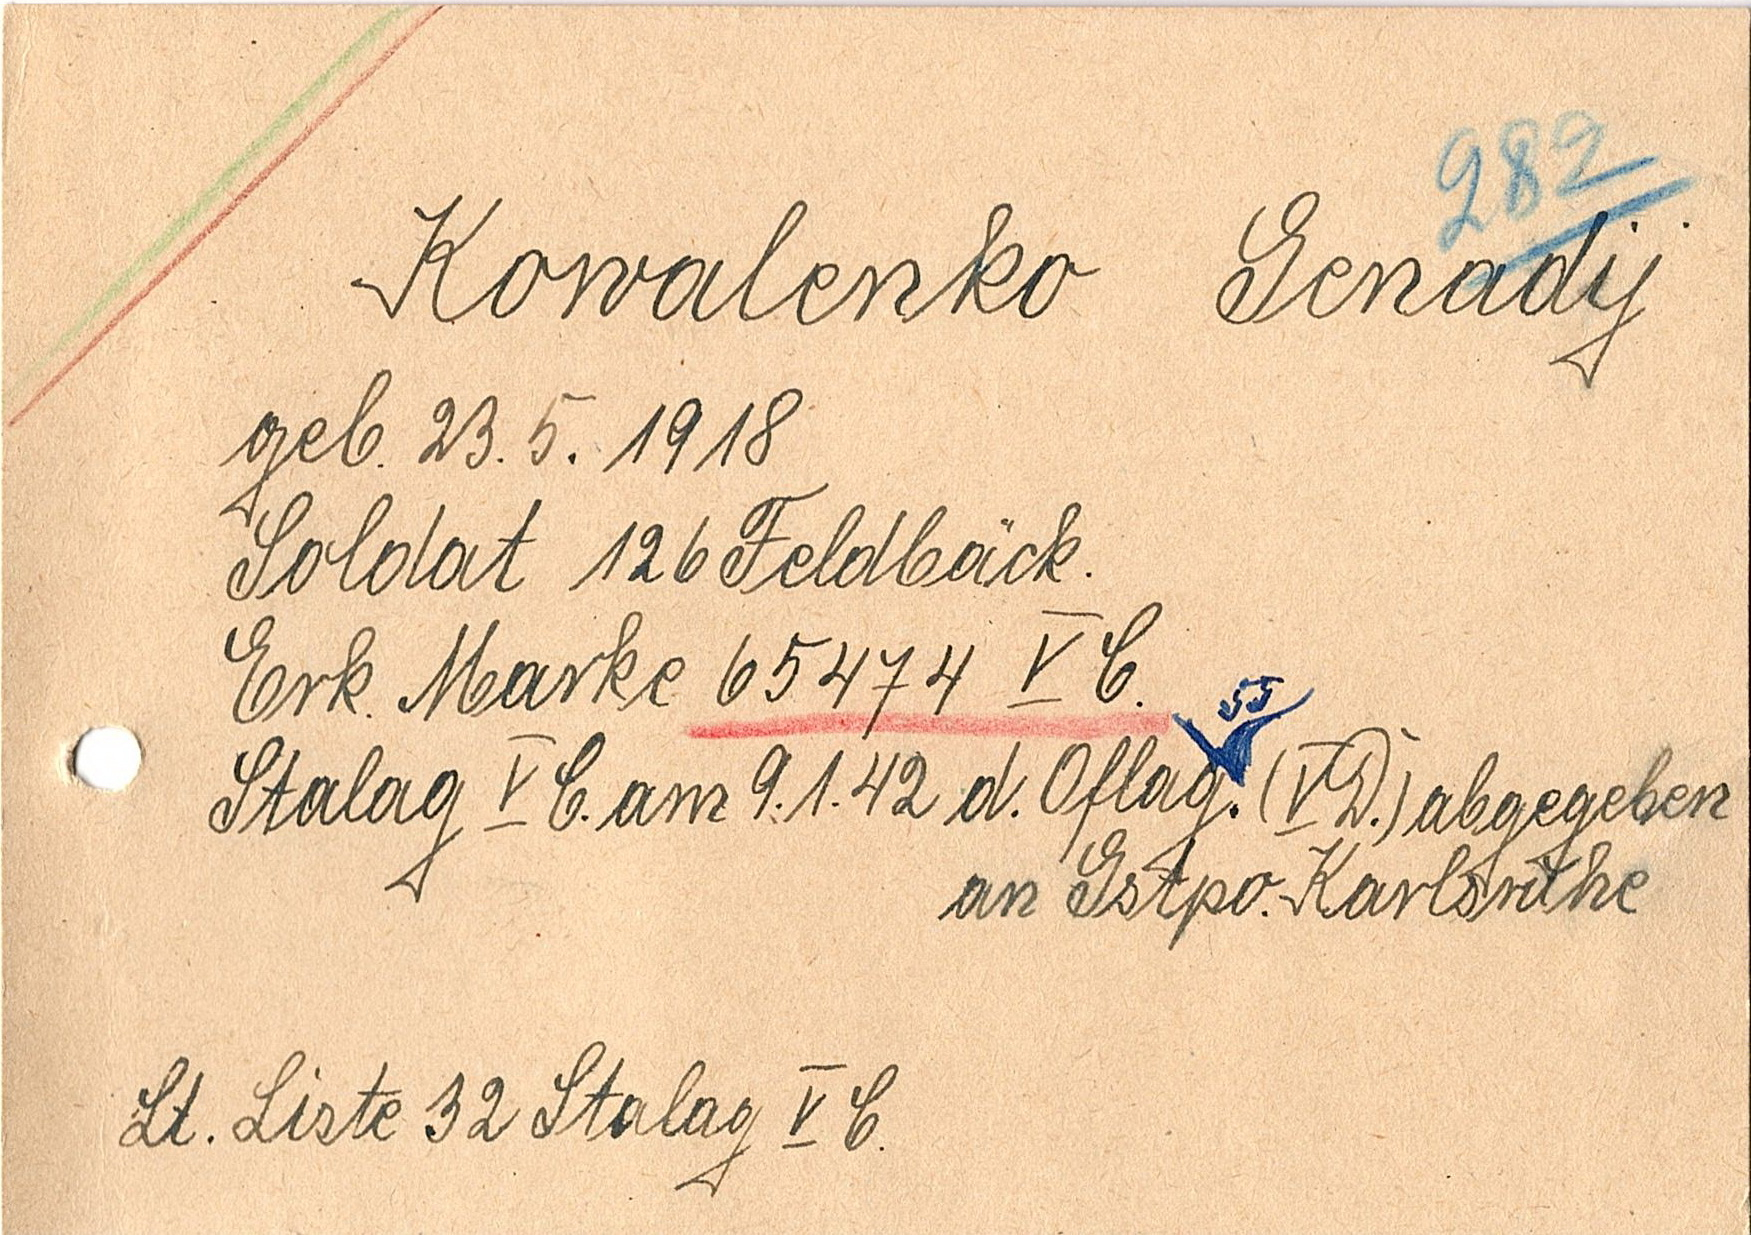 282
Kowalenko Genadij
geb. 23. 5. 1918
Soldat 126 Feldbäck.
Erk. Marke 65474 V C.
55
Stalag V C. am 9.1.42 d. Oflag. (V D.) abgegeben
an Gstpo. Karlsruhe
Lt. Liste 32 Stalag V C.